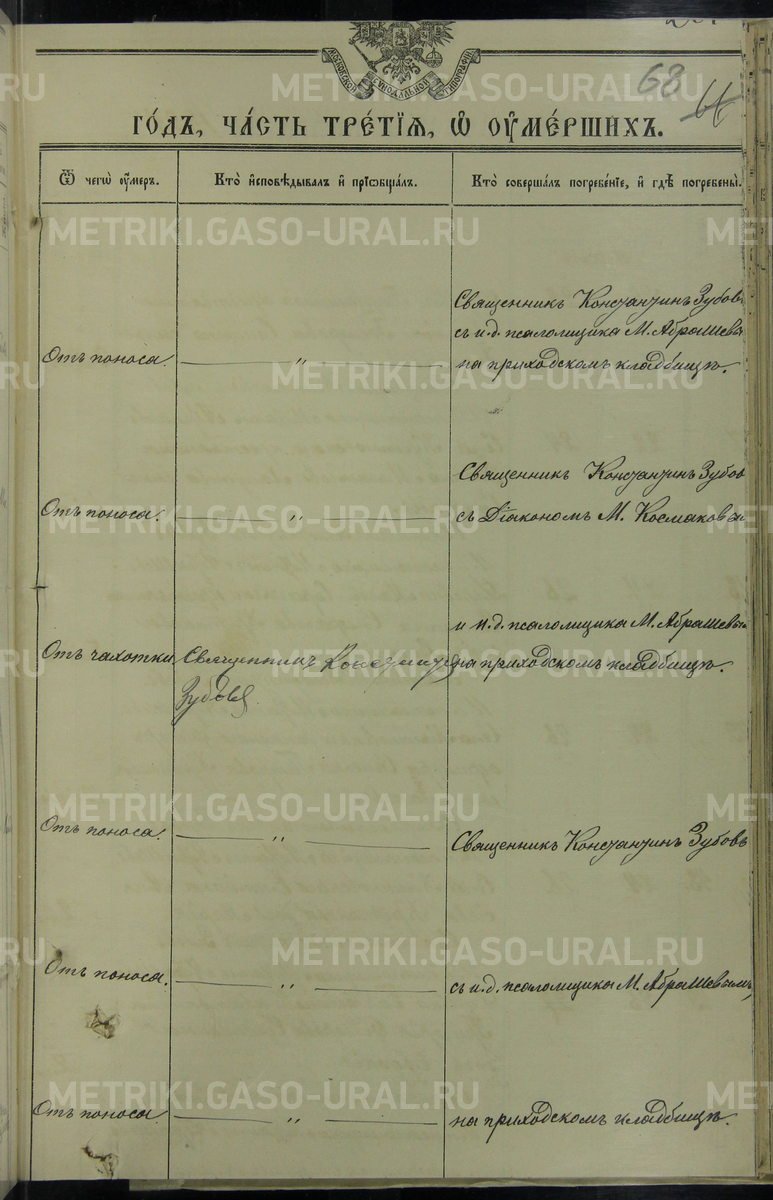 68
МОСКОВСКОЙ СѴНОДАЛЬНОЙ ТИПОГРАФІИ
ГО́ДЪ, ЧА́СТЬ ТРЕ́ТІѦ, Ѽ ОУ҆МЕ́РШИХЪ.
Ѿ чегѡ̀ оу҆́меръ.
Кто̀ и҆сповѣ́дывалъ и҆ прїѡбща́лъ.
Кто̀ соверша́лъ погребе́нїе, и҆ гдѣ̀ погребены̀.
Отъ поноса. — „ —
Священникъ Константинъ Зубовъ
съ и.д. псаломщика М. Абрашевы
на приходскомъ кладбищѣ.
Отъ поноса. — „ —
Священникъ Константинъ Зубов
съ Діакономъ М. Космаковы
Отъ чахотки
Священникъ Константинъ
Зубовъ
и и.д. псаломщика М. Абрашевы
на приходскомъ кладбищѣ.
Отъ поноса. — „ —
Священникъ Константинъ Зубовъ
Отъ поноса. — „ —
съ и.д. псаломщика М. Абрашевымъ,
Отъ поноса. — „ —
на приходскомъ кладбищѣ.
METRIKI.GASO-URAL.RU